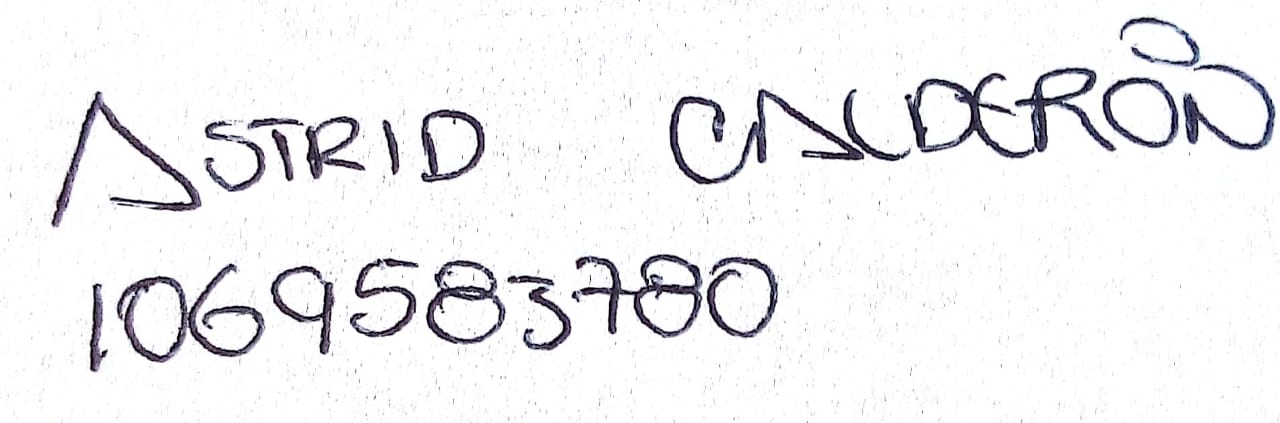 ASTRID CALDERÓN
1069583780